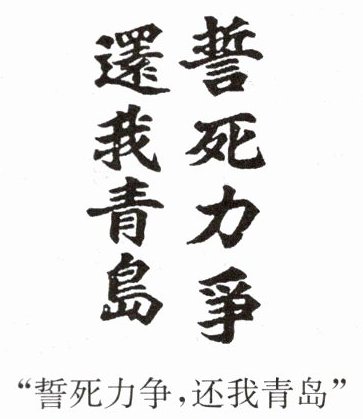 誓死力爭
還我青島
“誓死力争,还我青岛”